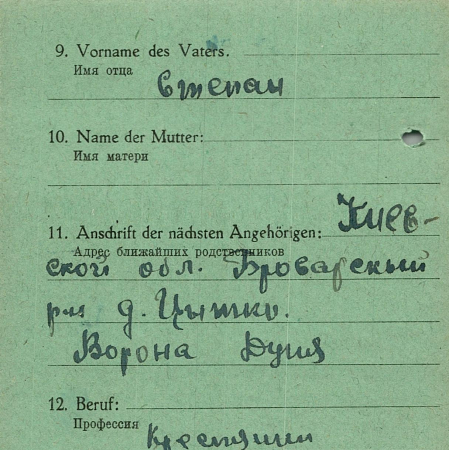 9. Vorname des Vaters.
Имя отца
Степан
10. Name der Mutter:
Имя матери
11. Anschrift der nächsten Angehörigen: Киев-
Адрес ближайших родственников
ской обл. Броварский
д.
Ворона Дуня
12. Beruf:
Профессия
Крестянин